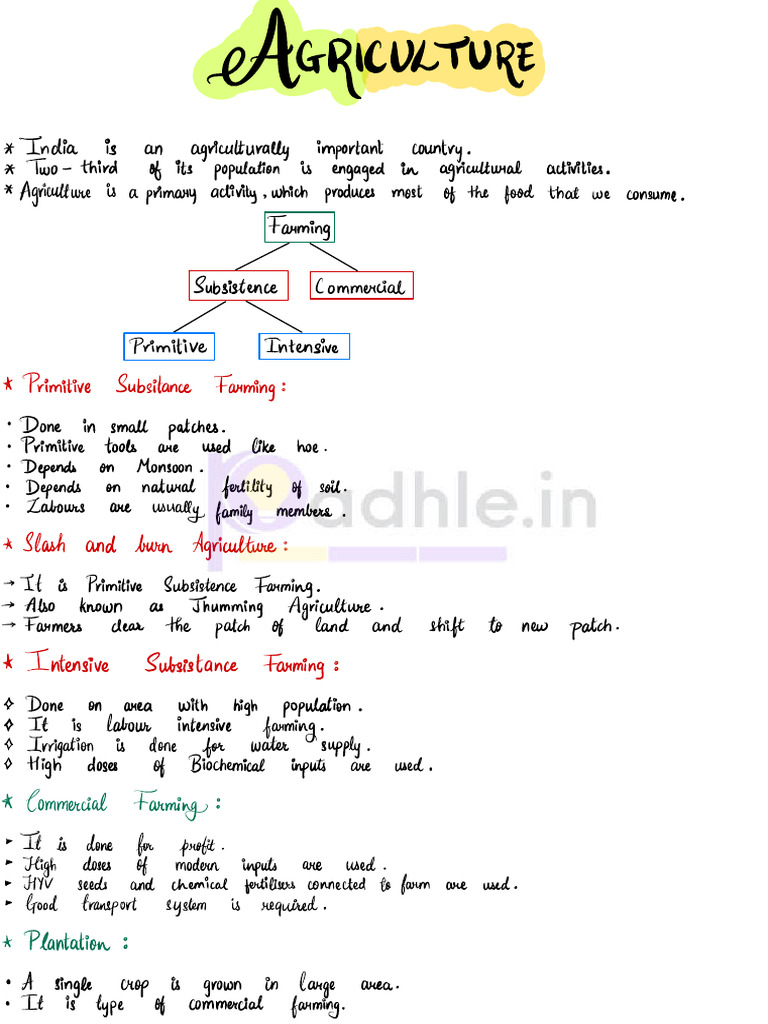 AGRICULTURE
* India is an agriculturally important country.
* Two-third of its population is engaged in agricultural activities.
* Agriculture is a primary activity, which produces most of the food that we consume.
Farming
Subsistence Commercial
Primitive Intensive
* Primitive Subsitance Farming:
• Done in small patches.
• Primitive tools are used like hoe.
• Depends on Monsoon.
• Depends on natural fertility of soil.
• Labours are usually family members.
padhle.in
* Slash and burn Agriculture:
→ It is Primitive Subsistence Farming.
→ Also known as Jhumming Agriculture.
→ Farmers clear the patch of land and shift to new patch.
* Intensive Subsistance Farming:
◇ Done on area with high population.
◇ It is labour intensive farming.
◇ Irrigation is done for water supply.
◇ High doses of Biochemical inputs are used.
* Commercial Farming:
➤ It is done for profit.
➤ High doses of modern inputs are used.
➤ HYV seeds and chemical fertilisers connected to farm are used.
➤ Good transport system is required.
* Plantation:
• A single crop is grown in large area.
• It is type of commercial farming.